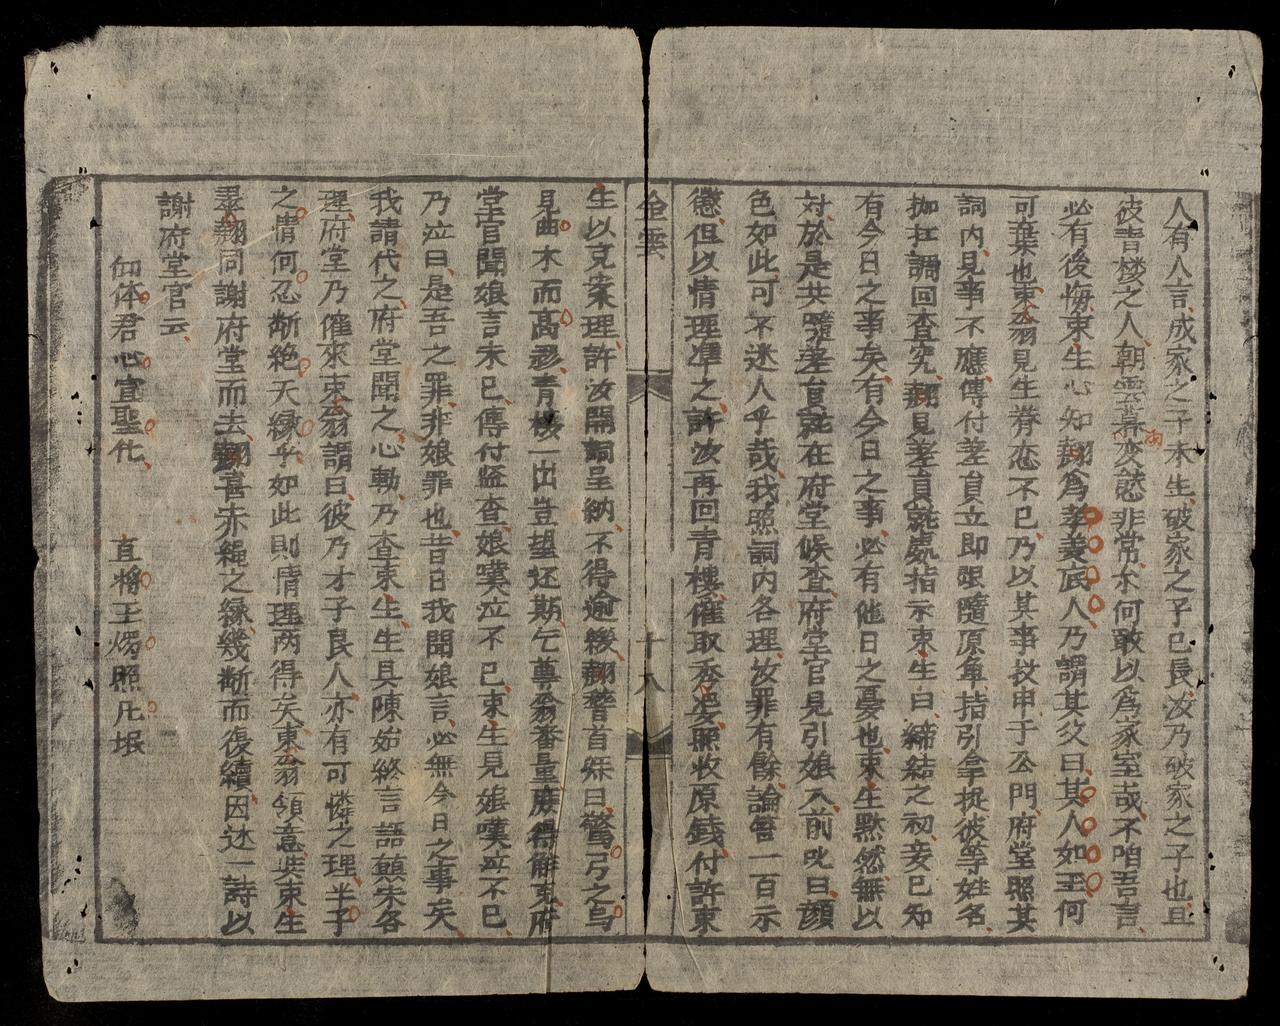 人有人言成家之子未生破家之子已長汝乃破家之子也且
彼青楼之人朝雲暮変態非常尓何敢以為家室哉不咱吾言
雨
必有後悔束生心知翹為孝義底人乃謂其父曰其人如玉何
可棄也束翁見生眷恋不已乃以其事投申于公門府堂照其
詞内見事不應傳付差員立即跟隨原单指引拿捉彼等姓名
枷扛調回查究翹見差員就處指示束生曰締結之初妾已知
有今日之事矣有今日之事必有他日之憂也束生黙然無以
対於是共隨差員就在府堂候查府堂官見引娘入前叱曰顔
色如此可不迷人乎哉我照詞内各理汝罪有餘論笞一百示
懲但以情理準之許汝再回青樓催取秀婆照收原錢付許束
金雲
十八
生以克案理許汝開詞呈納不得逾緩翹稽首稟曰驚弓之鸟
見曲木而高移青楼一出豈望还期乞尊翁審量庶得解克府
堂官聞娘言未已傳付監查娘嘆泣不已束生見娘嘆泣不已
乃泣曰是吾之罪非娘罪也昔日我聞娘言必無今日之事矣
我請代之府堂聞之心動乃查束生生具陳始終言語顛末各
理府堂乃催來束翁謂曰彼乃才子良人亦有可憐之理半子
之情何忍断絶天緣乎如此則情理两得矣束翁領意與束生
翹同謝府堂而去翹喜赤繩之緣幾断而復續因述一詩以
謝府堂官云
仰体君心宣聖化　直將玉燭照凡垠